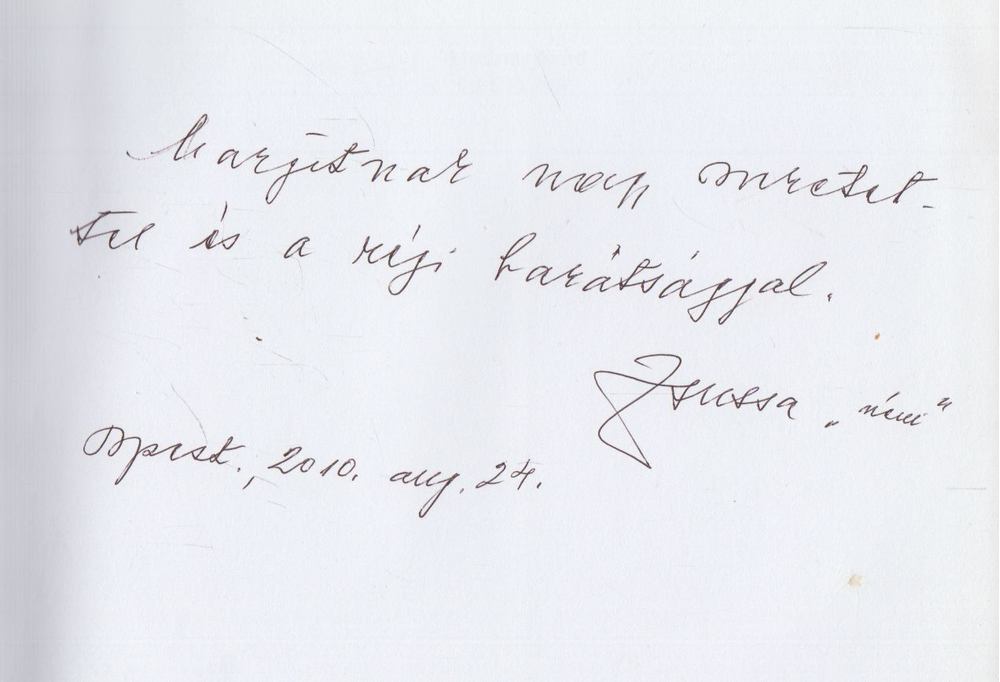 Margitnak nagy szeretet-
tel és a régi barátsággal.
Zsuzsa „néni"
Bpest., 2010. aug. 24.